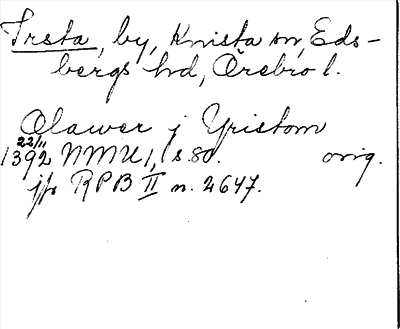 Irsta, by, Knista sn, Eds-
bergs hd, Örebro l.
Olawer j Yristom
22/11
1392 NMU 1, s. 80. orig.
jfr RPB II n. 2647.